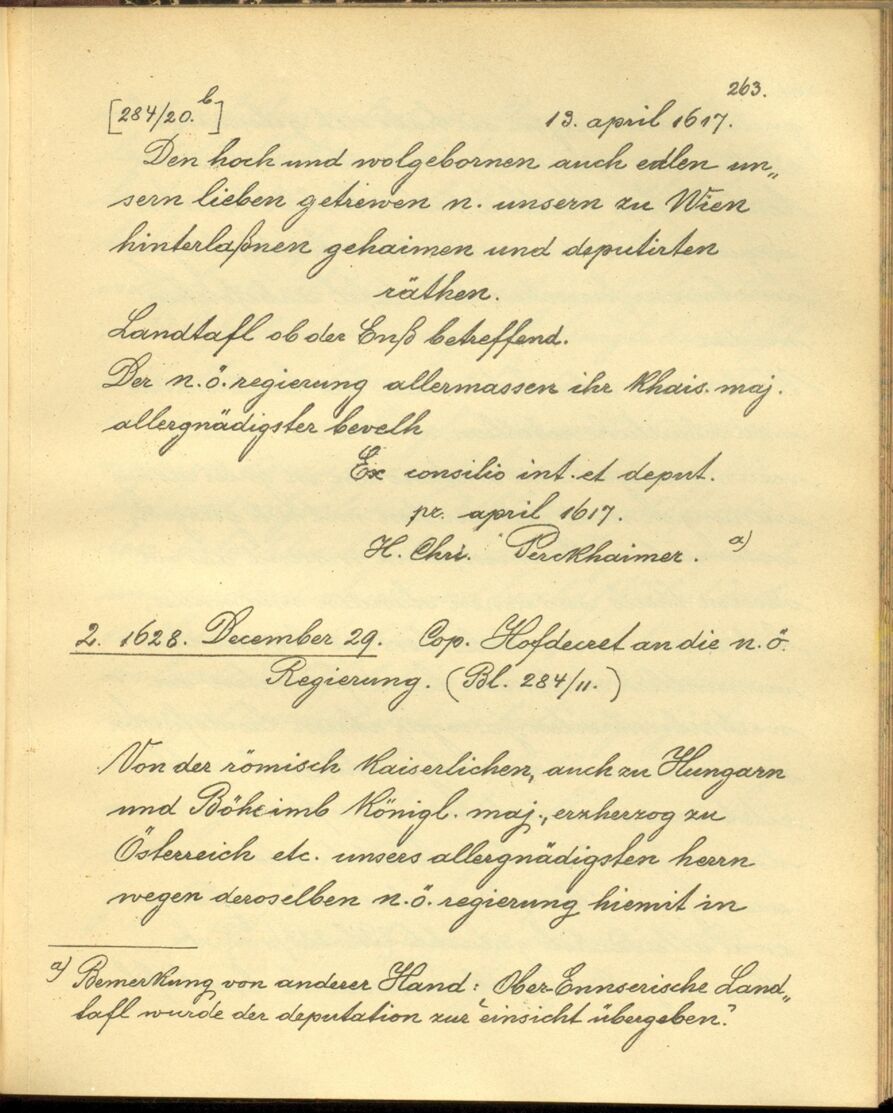 263.
[284/20.b] 13. april 1617.
Den hoch und wolgebornen auch edlen un„
sern lieben getrewen n. unsern zu Wien
hinterlaßnen gehaimen und deputirten
räthen.
Landtafl ob der Enß betreffend.
Der n. ö. regierung allermassen ihr khais. maj.
allergnädigster bevelh
Ex consilio int. et deput.
pr. april 1617.
H. Chri. Perckhaimer. a)
2. 1628. December 29. Cop. Hofdecret an die n. ö.
Regierung. (Bl. 284/11.)
Von der römisch kaiserlichen, auch zu Hungarn
und Böheimb Königl. maj., erzherzog zu
Österreich etc. unsers allergnädigsten herrn
wegen deroselben n. ö. regierung hiemit in
a) Bemerkung von anderer Hand: Ober-Ennserische Land„
tafl wurde der deputation zur einsicht übergeben.